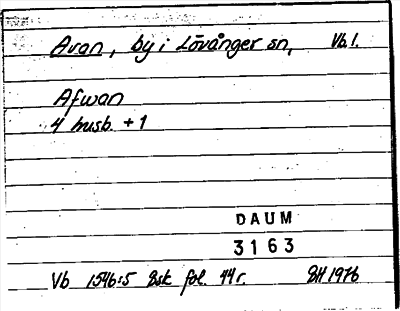 Avan, by i Lövånger sn, Vb.l.
Afwan
4 husb. + 1
DAUM
3163
Vb 1546:5 Bsk fol. 44 r. BH 1976